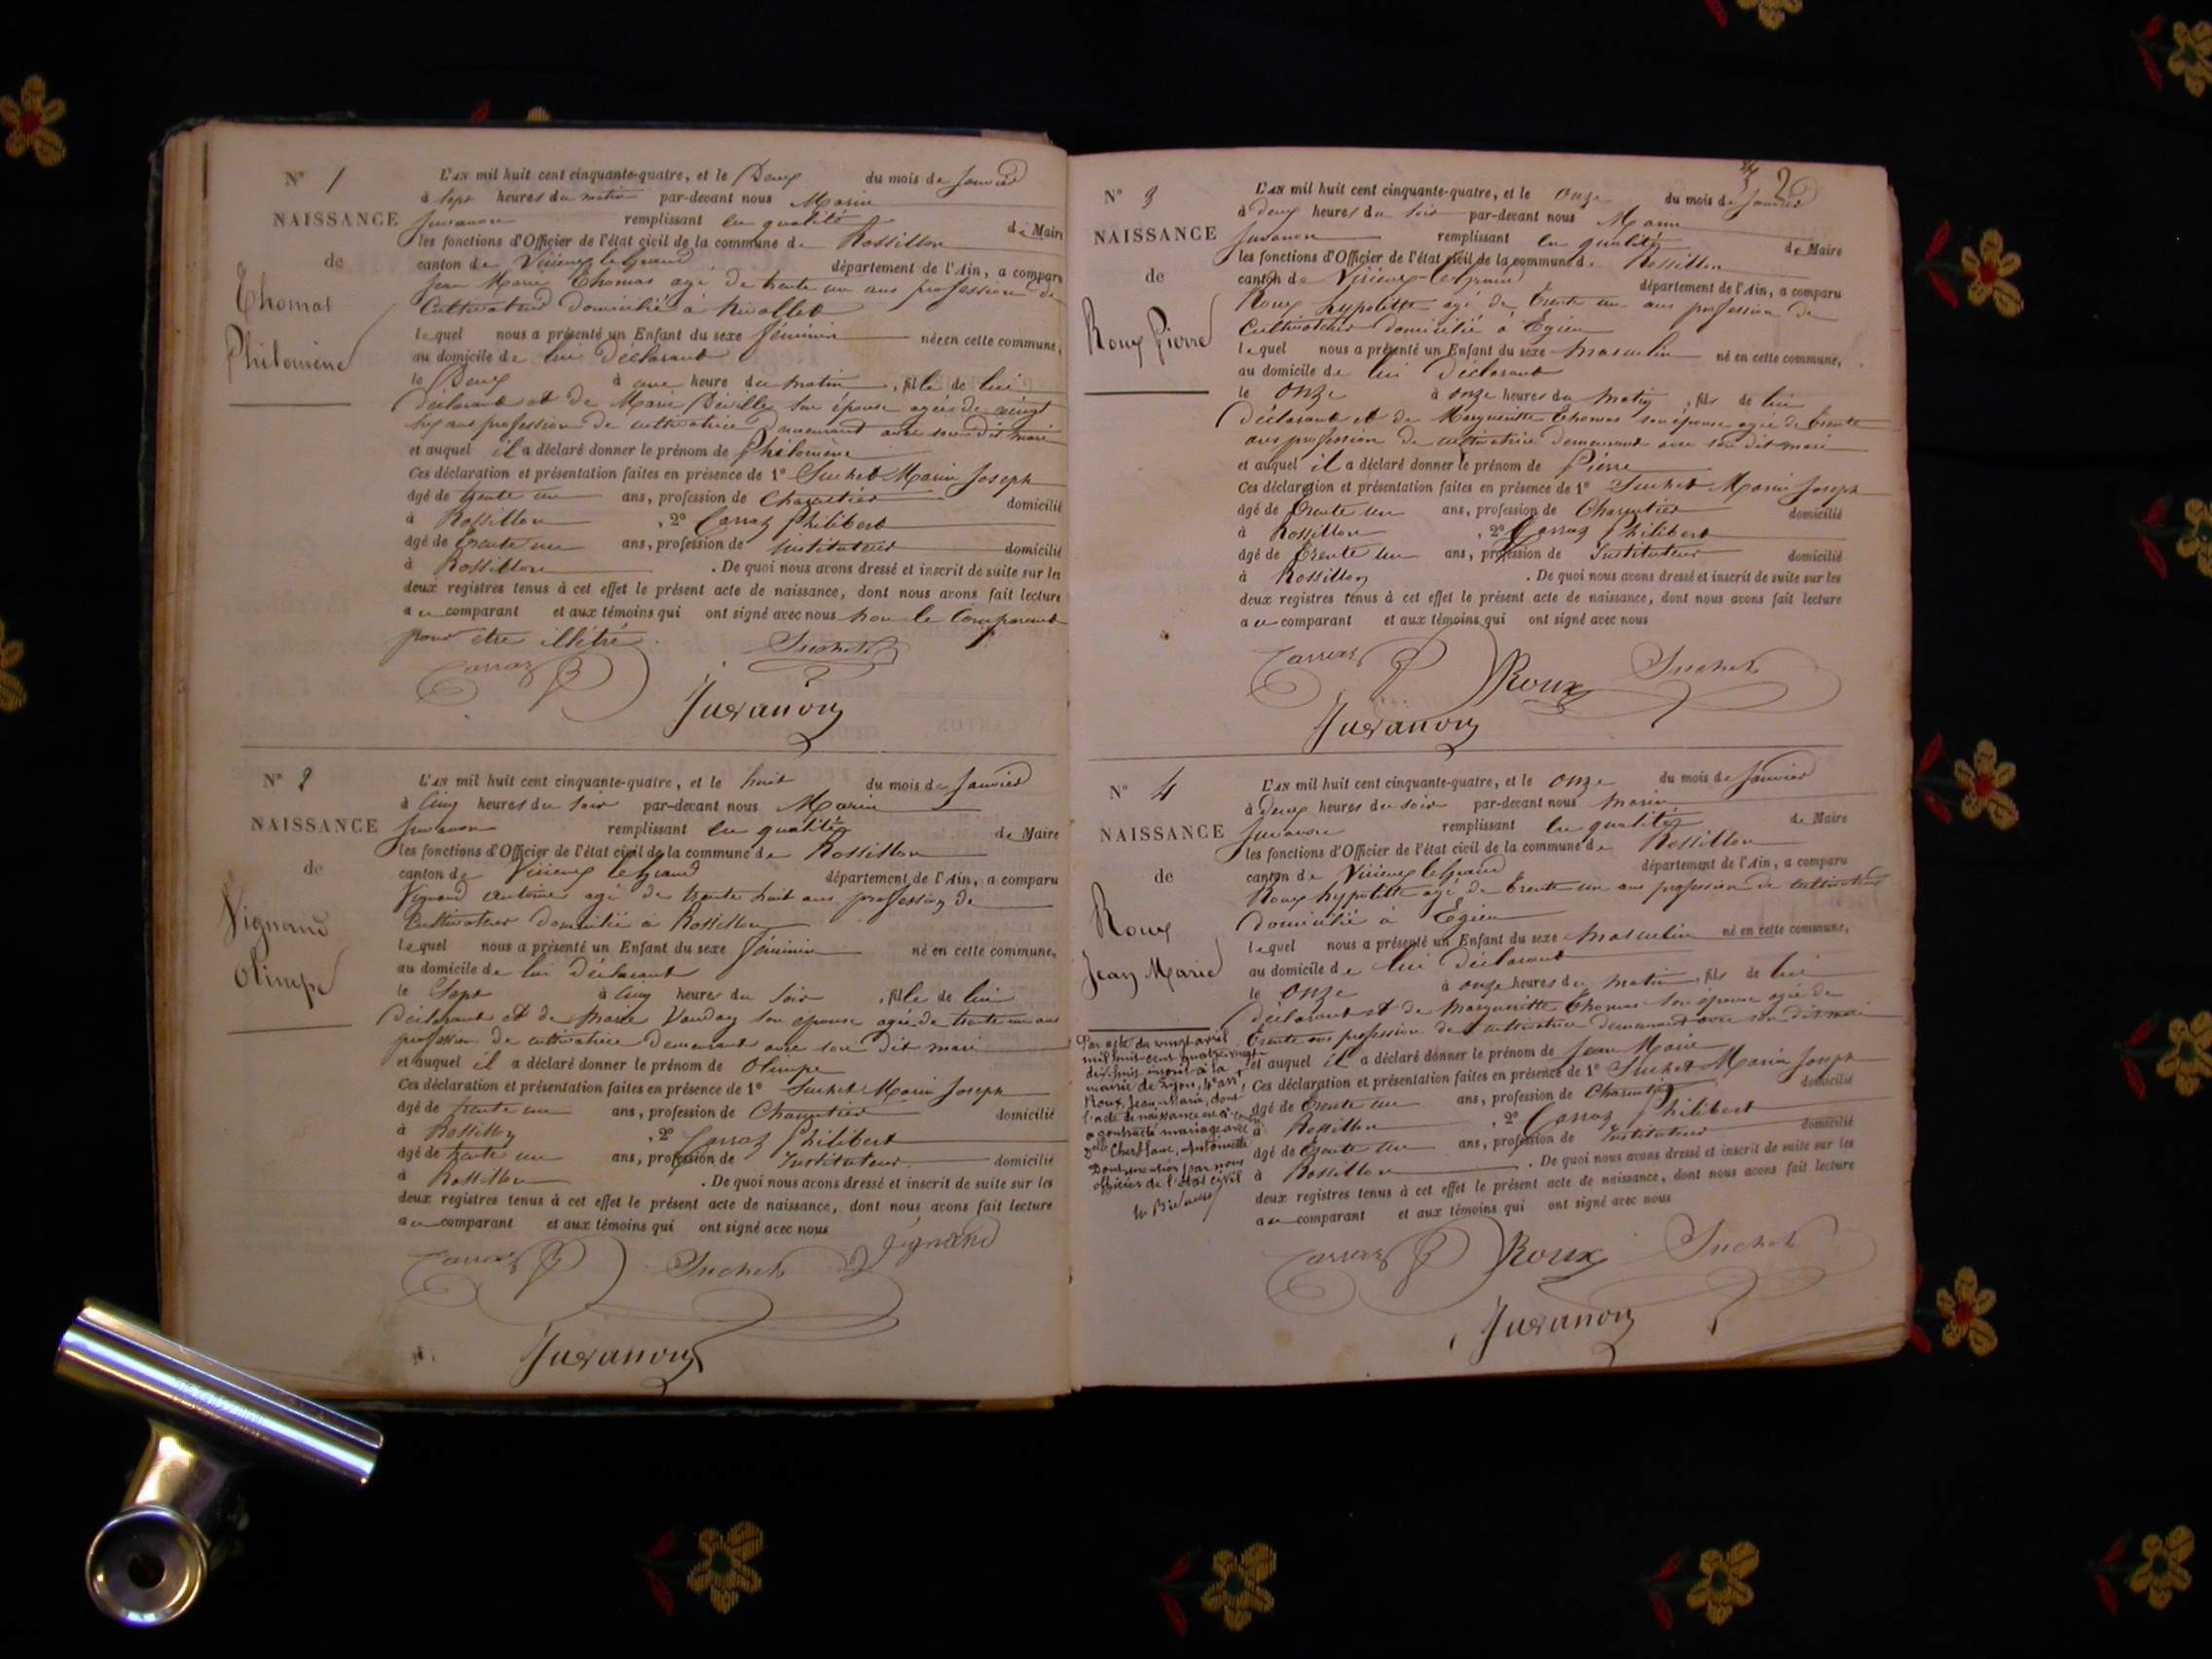 N° 1
NAISSANCE
de
Thomas
Philomène
L'AN mil huit cent cinquante-quatre, et le Deux du mois de Janvier
à Sept heures du matin par-devant nous Marin
Juvanon remplissant en qualité de Maire
les fonctions d'Officier de l'état civil de la commune de Rossillon
canton de Virieux le Grand département de l'Ain, a comparu
Jean Marie Thomas agé de trente un ans profession de
Cultivateur domicilié à
lequel nous a présenté un Enfant du sexe féminin née en cette commune,
au domicile de lui Déclarant
le Deux à une heure du matin, fille de lui
Déclarant et de Marie son épouse agée de vingt
ans profession de cultivatrice Demeurant avec son dit mari
et auquel il a déclaré donner le prénom de Philomène
Ces déclaration et présentation faites en présence de 1° Suchet Marin Joseph
âgé de trente un ans, profession de Charcutier domicilié
à Rossillon, 2° Carraz Philibert
âgé de trente un ans, profession de instituteur domicilié
à Rossillon. De quoi nous avons dressé et inscrit de suite sur les
deux registres tenus à cet effet le présent acte de naissance, dont nous avons fait lecture
au comparant et aux témoins qui ont signé avec nous non le Comparant
pour être illétré.
Carraz Suchet
Juvanon
N° 2
NAISSANCE
de
Vignand
Olimpe
L'AN mil huit cent cinquante-quatre, et le huit du mois de Janvier
à Cinq heures du soir par-devant nous Marin
Juvanon remplissant en qualité de Maire
les fonctions d'Officier de l'état civil de la commune de Rossillon
canton de Virieux le Grand département de l'Ain, a comparu
Vignand antoine agé de trente huit ans profession de
Cultivateur domicilié à Rossillon
lequel nous a présenté un Enfant du sexe féminin né en cette commune,
au domicile de lui Déclarant
le Sept à Cinq heures du soir, fille de lui
Déclarant et de Marie Vauday son épouse agée de trente un ans
profession de cultivatrice Demeurant avec son dit mari
et auquel il a déclaré donner le prénom de Olimpe
Ces déclaration et présentation faites en présence de 1° Suchet Marin Joseph
âgé de trente un ans, profession de Charcutier domicilié
à Rossillon, 2° Carraz Philibert
âgé de trente un ans, profession de Instituteur domicilié
à Rossillon. De quoi nous avons dressé et inscrit de suite sur les
deux registres tenus à cet effet le présent acte de naissance, dont nous avons fait lecture
au comparant et aux témoins qui ont signé avec nous
Carraz Suchet Vignand
Juvanon
2
N° 3
NAISSANCE
de
Roux Pierre
L'AN mil huit cent cinquante-quatre, et le onze du mois de Janvier
à deux heures du soir par-devant nous Marin
Juvanon remplissant en qualité de Maire
les fonctions d'Officier de l'état civil de la commune de Rossillon
canton de Virieux-le Grand département de l'Ain, a comparu
Roux hypolitte agé de trente un ans profession de
Cultivateur domicilié à Egieu
lequel nous a présenté un Enfant du sexe masculin né en cette commune,
au domicile de lui Déclarant
le onze à onze heures du matin, fils de lui
Déclarant et de Margueritte Thomas son épouse agée de trente
ans profession de cultivatrice demeurant avec son dit mari
et auquel il a déclaré donner le prénom de Pierre
Ces déclaration et présentation faites en présence de 1° Suchet Marin Joseph
âgé de trente un ans, profession de Charcutier domicilié
à Rossillon, 2° Carraz Philibert
âgé de trente un ans, profession de Instituteur domicilié
à Rossillon. De quoi nous avons dressé et inscrit de suite sur les
deux registres tenus à cet effet le présent acte de naissance, dont nous avons fait lecture
au comparant et aux témoins qui ont signé avec nous
Carraz Roux Suchet
Juvanon
N° 4
NAISSANCE
de
Roux
Jean Marie
L'AN mil huit cent cinquante-quatre, et le onze du mois de Janvier
à deux heures du soir par-devant nous Marin
Juvanon remplissant en qualité de Maire
les fonctions d'Officier de l'état civil de la commune de Rossillon
canton de Virieux le Grand département de l'Ain, a comparu
Roux hypolitte agé de trente un ans profession de cultivateur
domicilié à Egieu
lequel nous a présenté un Enfant du sexe masculin né en cette commune,
au domicile de lui Déclarant
le onze à onze heures du matin, fils de lui
Déclarant et de Margueritte Thomas son épouse agée de
trente ans profession de cultivatrice demeurant avec son dit mari
et auquel il a déclaré donner le prénom de Jean Marie
Ces déclaration et présentation faites en présence de 1° Suchet Marin Joseph
âgé de trente un ans, profession de Charcutier domicilié
à Rossillon, 2° Carraz Philibert
âgé de trente un ans, profession de Instituteur domicilié
à Rossillon. De quoi nous avons dressé et inscrit de suite sur les
deux registres tenus à cet effet le présent acte de naissance, dont nous avons fait lecture
au comparant et aux témoins qui ont signé avec nous
Carraz Roux Suchet
Juvanon
Par acte du vingt avril
mil huit cent quatre vingt
dix huit, inscrit à la
mairie de Lyon, arr
Roux, Jean-Marie, dont
l'acte de naissance est ci-contre
a contracté mariage avec
Antoinette
Dont mention par nous
officier de l'état civil